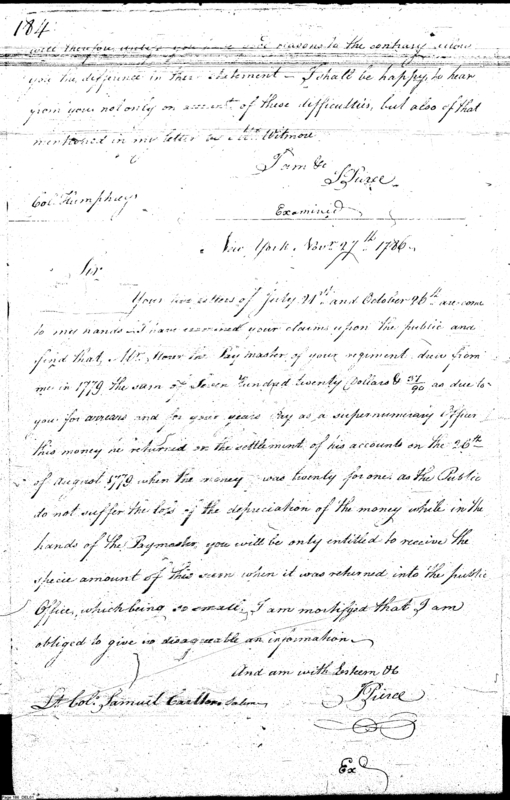 184
will therefore unless you have reasons to the contrary allow
you the difference in their statement — I shall be happy to hear
from you not only on account of these difficulties, but also of that
mentioned in my letter on Mr. Witmore
I am &c
J Pierce
Col. Humphreys
Examined
New York Novr. 27th 1786
Sir
Your two letters of July 21st and October 26th are come
to my hands I have examined your claims upon the public and
find that, Mr. the Pay master of your regiment drew from
me in 1779 the sum of Seven Hundred twenty Dollars & 51/90 as due to
you for arrears and for your years Pay as a supernumerary Officer
this money he returned on the settlement of his accounts on the 26th
of August 1779 when the money was twenty for one, as the Public
do not suffer the loss of the depreciation of the money while in the
hands of the Paymaster, you will be only entitled to receive the
specie amount of this sum when it was returned into the public
Office, which being so small, I am mortifyed that I am
obliged to give so disagreeable an information
And am with Esteem &c
Lt Col. Samuel Carlton Salem
J Pierce
Ex
Page 188